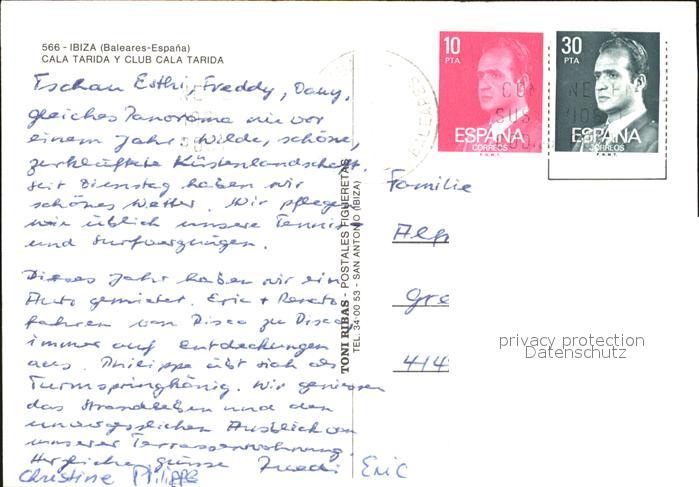 566 - IBIZA (Baleares-España)
CALA TARIDA Y CLUB CALA TARIDA
Tschau Esthi, Freddy, Dany,
gleiches Panorama wie vor
einem Jahr. Wilde, schöne,
zerklüftete Küstenlandschaft.
Seit Dienstag haben wir
schönes Wetter. Wir pflegen
wie üblich unsere Tennis-
und Surfvergnügen.
Dieses Jahr haben wir ein
Auto gemietet. Eric + Renato
fahren von Disco zu Disco,
immer auf Entdeckungen
aus. Philippe übt sich als
Turmspringkönig. Wir geniessen
das Strandleben und den
unvergesslichen Ausblick von
unserer Terrassenwohnung.
Herzliche Grüsse Eric
Christine Philippe
TONI RIBAS - POSTALES FIGUERETAS
TEL. 34 00 53 - SAN ANTONIO (IBIZA)
10
PTA
ESPAÑA
CORREOS
F.N.M.T.
30
PTA
ESPAÑA
CORREOS
F.N.M.T.
BALEARES
Familie
Alp
Gre
414
privacy protection
Datenschutz